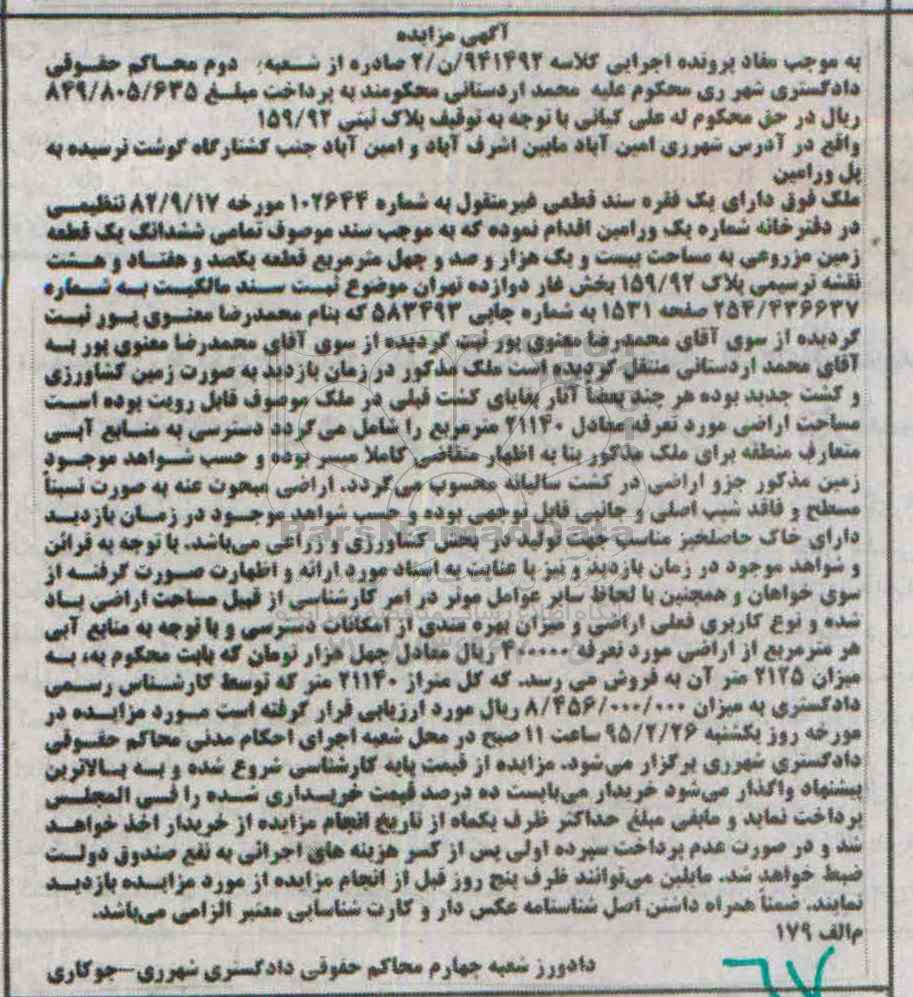 آگهی مزایده
به موجب مفاد پرونده اجرایی کلاسه ۹۴۱۴۹۲/ن/۲ صادره از شعبه دوم محاکم حقوقی
دادگستری شهر ری محکوم علیه محمد اردستانی محکومند به پرداخت مبلغ ۸۴۹/۸۰۵/۶۳۵
ریال در حق محکوم له علی کیانی با توجه به توقیف پلاک ثبتی ۱۵۹/۹۲
واقع در آدرس شهرری امین آباد مابین اشرف آباد و امین آباد جنب کشتارگاه گوشت نرسیده به
پل ورامین
ملک فوق دارای یک فقره سند قطعی غیرمنقول به شماره ۱۰۲۶۴۴ مورخه ۸۲/۹/۱۷ تنظیمی
در دفترخانه شماره یک ورامین اقدام نموده که به موجب سند موصوف تمامی ششدانگ یک قطعه
زمین مزروعی به مساحت بیست و یک هزار و صد و چهل مترمربع قطعه یکصد و هفتاد و هشت
نقشه ترسیمی پلاک ۱۵۹/۹۲ بخش غار دوازده تهران موضوع ثبت سند مالکیت به شماره
۲۵۴/۴۳۶۶۳۷ صفحه ۱۵۳۱ به شماره چاپی ۵۸۳۴۹۳ که بنام محمدرضا معنوی پور ثبت
گردیده از سوی آقای محمدرضا معنوی پور ثبت گردیده از سوی آقای محمدرضا معنوی پور به
آقای محمد اردستانی منتقل گردیده است ملک مذکور در زمان بازدید به صورت زمین کشاورزی
و کشت جدید بوده هر چند بعضاً آثار بقایای کشت قبلی در ملک موصوف قابل رویت بوده است
مساحت اراضی مورد تعرفه معادل ۲۱۱۴۰ مترمربع را شامل می‌گردد دسترسی به منابع آبی
متعارف منطقه برای ملک مذکور بنا به اظهار متقاضی کاملا میسر بوده و حسب شواهد موجود
زمین مذکور جزو اراضی در کشت سالیانه محسوب می‌گردد. اراضی مبحوث عنه به صورت نسبتاً
مسطح و فاقد شیب اصلی و جانبی قابل توجهی بوده و حسب شواهد موجود در زمان بازدید
دارای خاک حاصلخیز مناسب جهت تولید در بخش کشاورزی و زراعی می‌باشد. با توجه به قرائن
و شواهد موجود در زمان بازدید و نیز با عنایت به اسناد مورد ارائه و اظهارت صورت گرفته از
سوی خواهان و همچنین با لحاظ سایر عوامل موثر در امر کارشناسی از قبیل مساحت اراضی یاد
شده و نوع کاربری فعلی اراضی و میزان بهره مندی از امکانات دسترسی و با توجه به منابع آبی
هر مترمربع از اراضی مورد تعرفه ۴۰۰۰۰۰ ریال معادل چهل هزار تومان که بابت محکوم به، به
میزان ۲۱۲۵ متر آن به فروش می رسد. که کل متراژ ۲۱۱۴۰ متر که توسط کارشناس رسمی
دادگستری به میزان ۸/۴۵۶/۰۰۰/۰۰۰ ریال مورد ارزیابی قرار گرفته است مورد مزایده در
مورخه روز یکشنبه ۹۵/۲/۲۶ ساعت ۱۱ صبح در محل شعبه اجرای احکام مدنی محاکم حقوقی
دادگستری شهرری برگزار می‌شود. مزایده از قیمت پایه کارشناسی شروع شده و به بالاترین
پیشنهاد واگذار می‌شود خریدار می‌بایست ده درصد قیمت خریداری شده را فی المجلس
پرداخت نماید و مابقی مبلغ حداکثر ظرف یکماه از تاریخ انجام مزایده از خریدار اخذ خواهد
شد و در صورت عدم پرداخت سپرده اولی پس از کسر هزینه های اجرائی به نفع صندوق دولت
ضبط خواهد شد. مایلین می‌توانند ظرف پنج روز قبل از انجام مزایده از مورد مزایده بازدید
نمایند. ضمناً همراه داشتن اصل شناسنامه عکس دار و کارت شناسایی معتبر الزامی می‌باشد.
م‌الف ۱۷۹
دادورز شعبه چهارم محاکم حقوقی دادگستری شهرری-جوکاری
۶۷
ParsNamadData